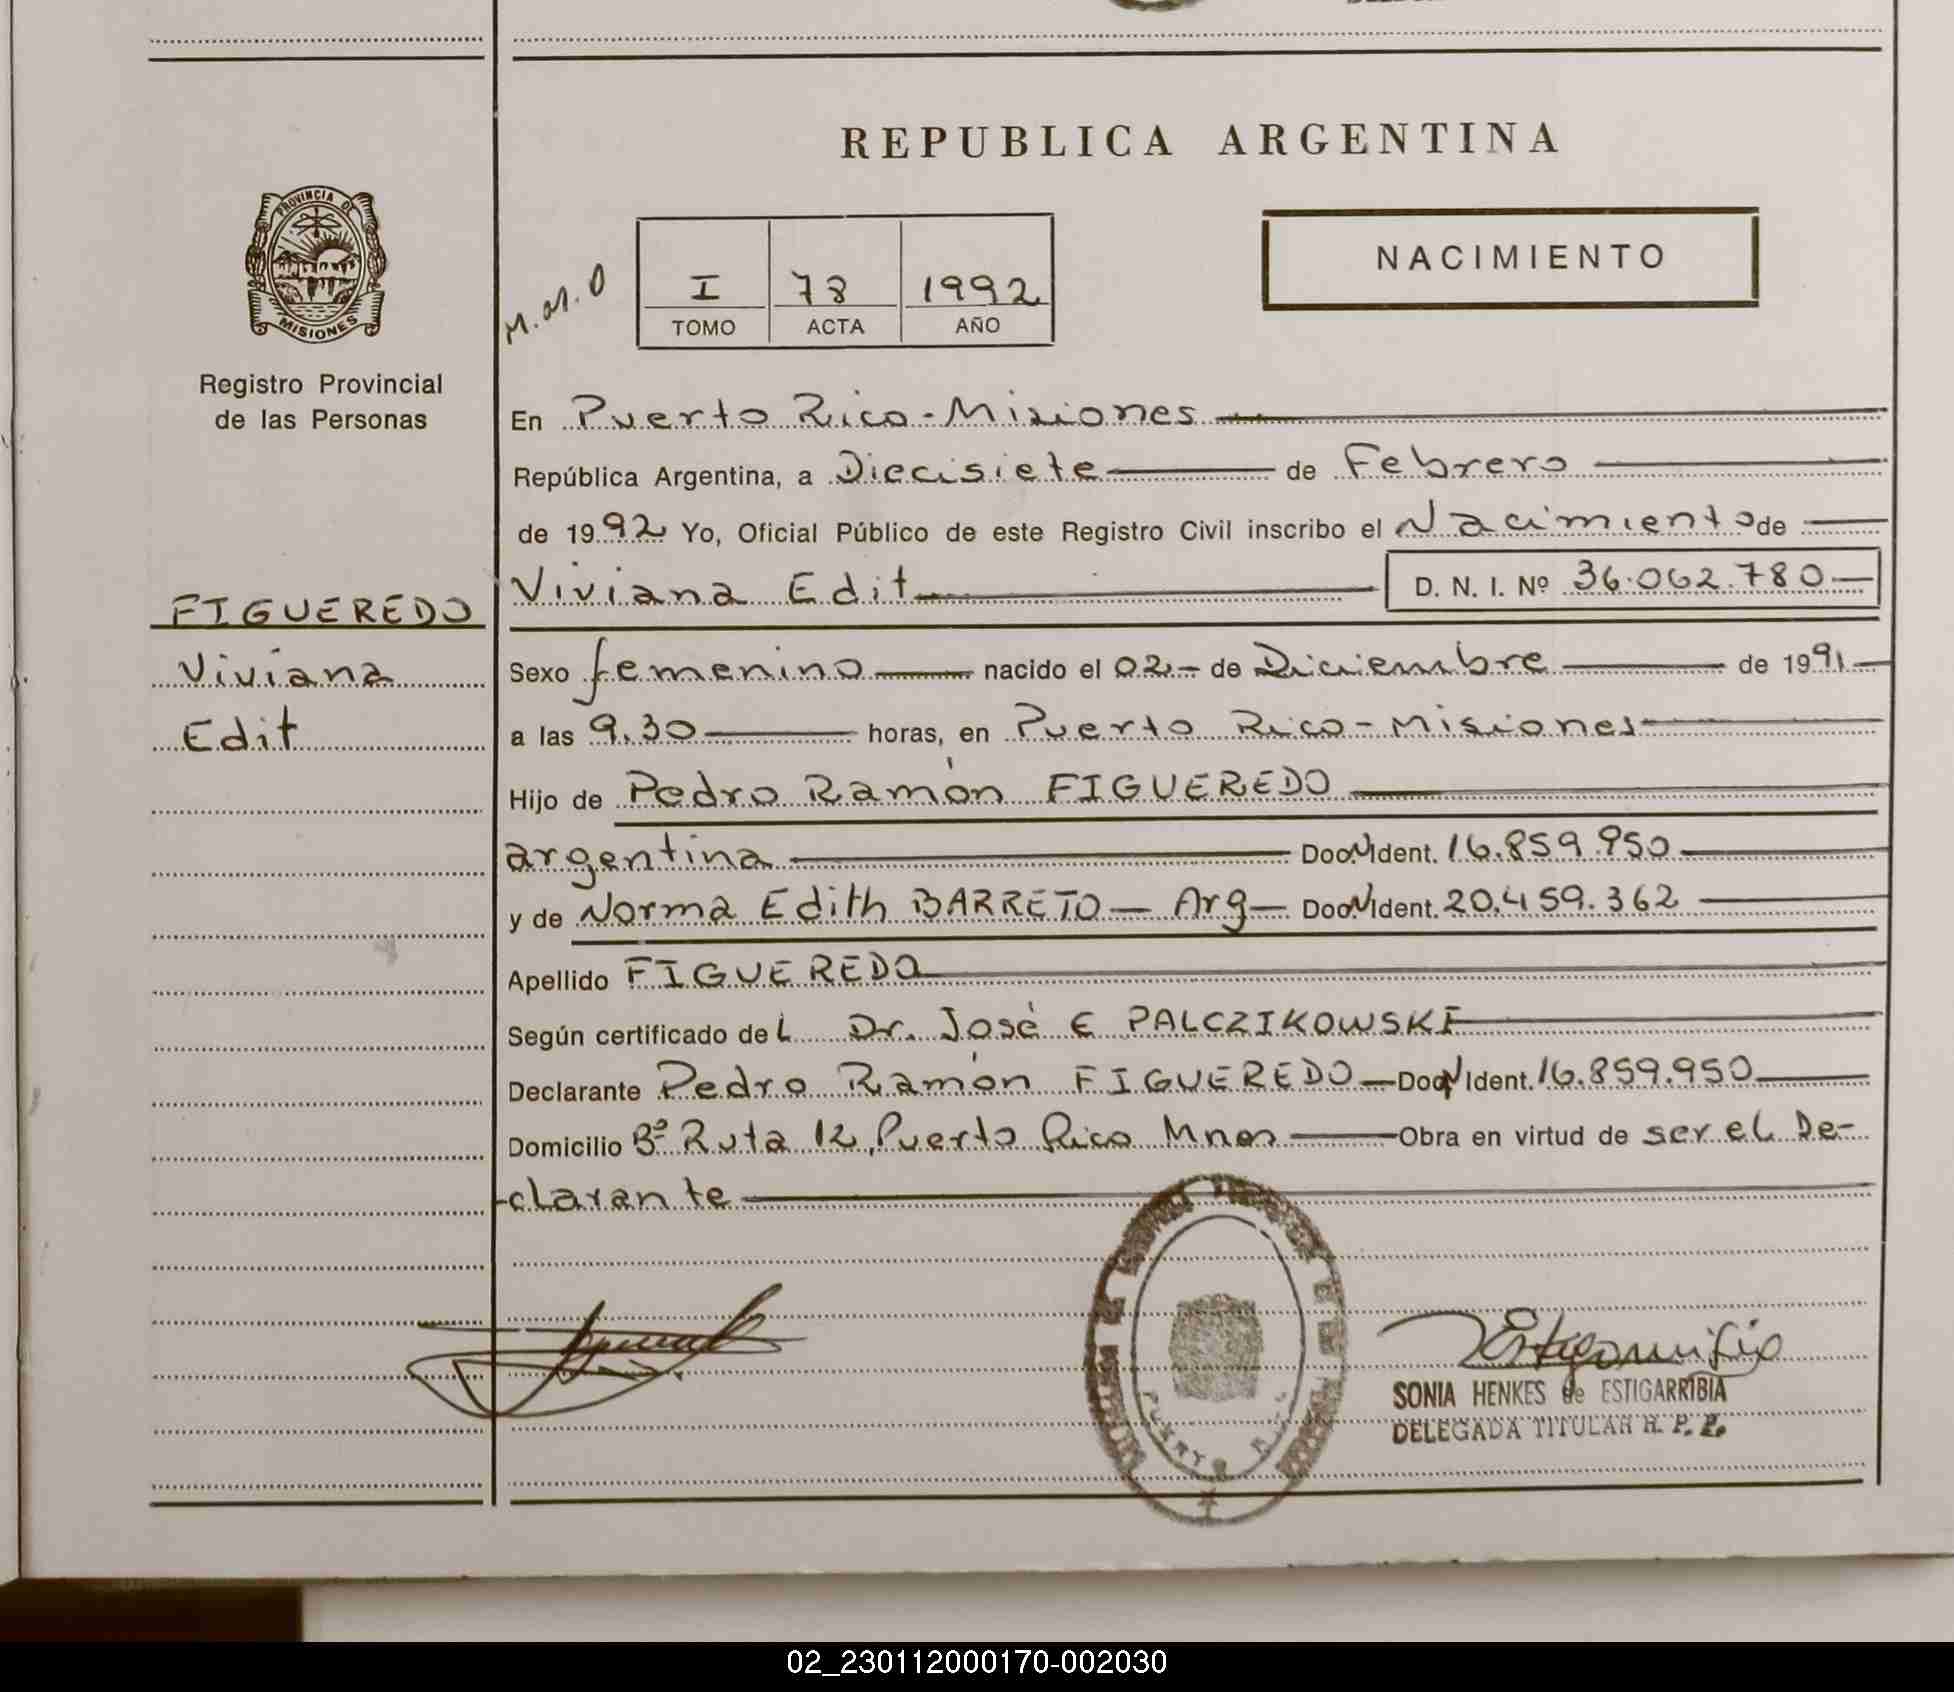 REPUBLICA ARGENTINA
PROVINCIA DE
MISIONES
Registro Provincial
de las Personas
FIGUEREDO
Viviana
Edit
I 78 1992
TOMO ACTA AÑO
NACIMIENTO
En Puerto Rico - Misiones
República Argentina, a Diecisiete de Febrero
de 1992 Yo, Oficial Público de este Registro Civil inscribo el Nacimiento de
Viviana Edit D. N. I. Nº 36.062.780
Sexo femenino nacido el 02 - de Diciembre de 1991
a las 9.30 horas, en Puerto Rico - Misiones
Hijo de Pedro Ramón FIGUEREDO
argentina Doc. N Ident. 16.859.950
y de Norma Edith BARRETO - Arg - Doc. N Ident. 20.459.362
Apellido FIGUEREDO
Según certificado del Dr. José E PALCZIKOWSKI
Declarante Pedro Ramón FIGUEREDO - Doc N Ident. 16.859.950
Domicilio Bº Ruta 12, Puerto Rico Mnes Obra en virtud de ser el De-
clarante
PUERTO
SONIA HENKES de ESTIGARRIBIA
DELEGADA TITULAR R. P. P.
02_230112000170-002030